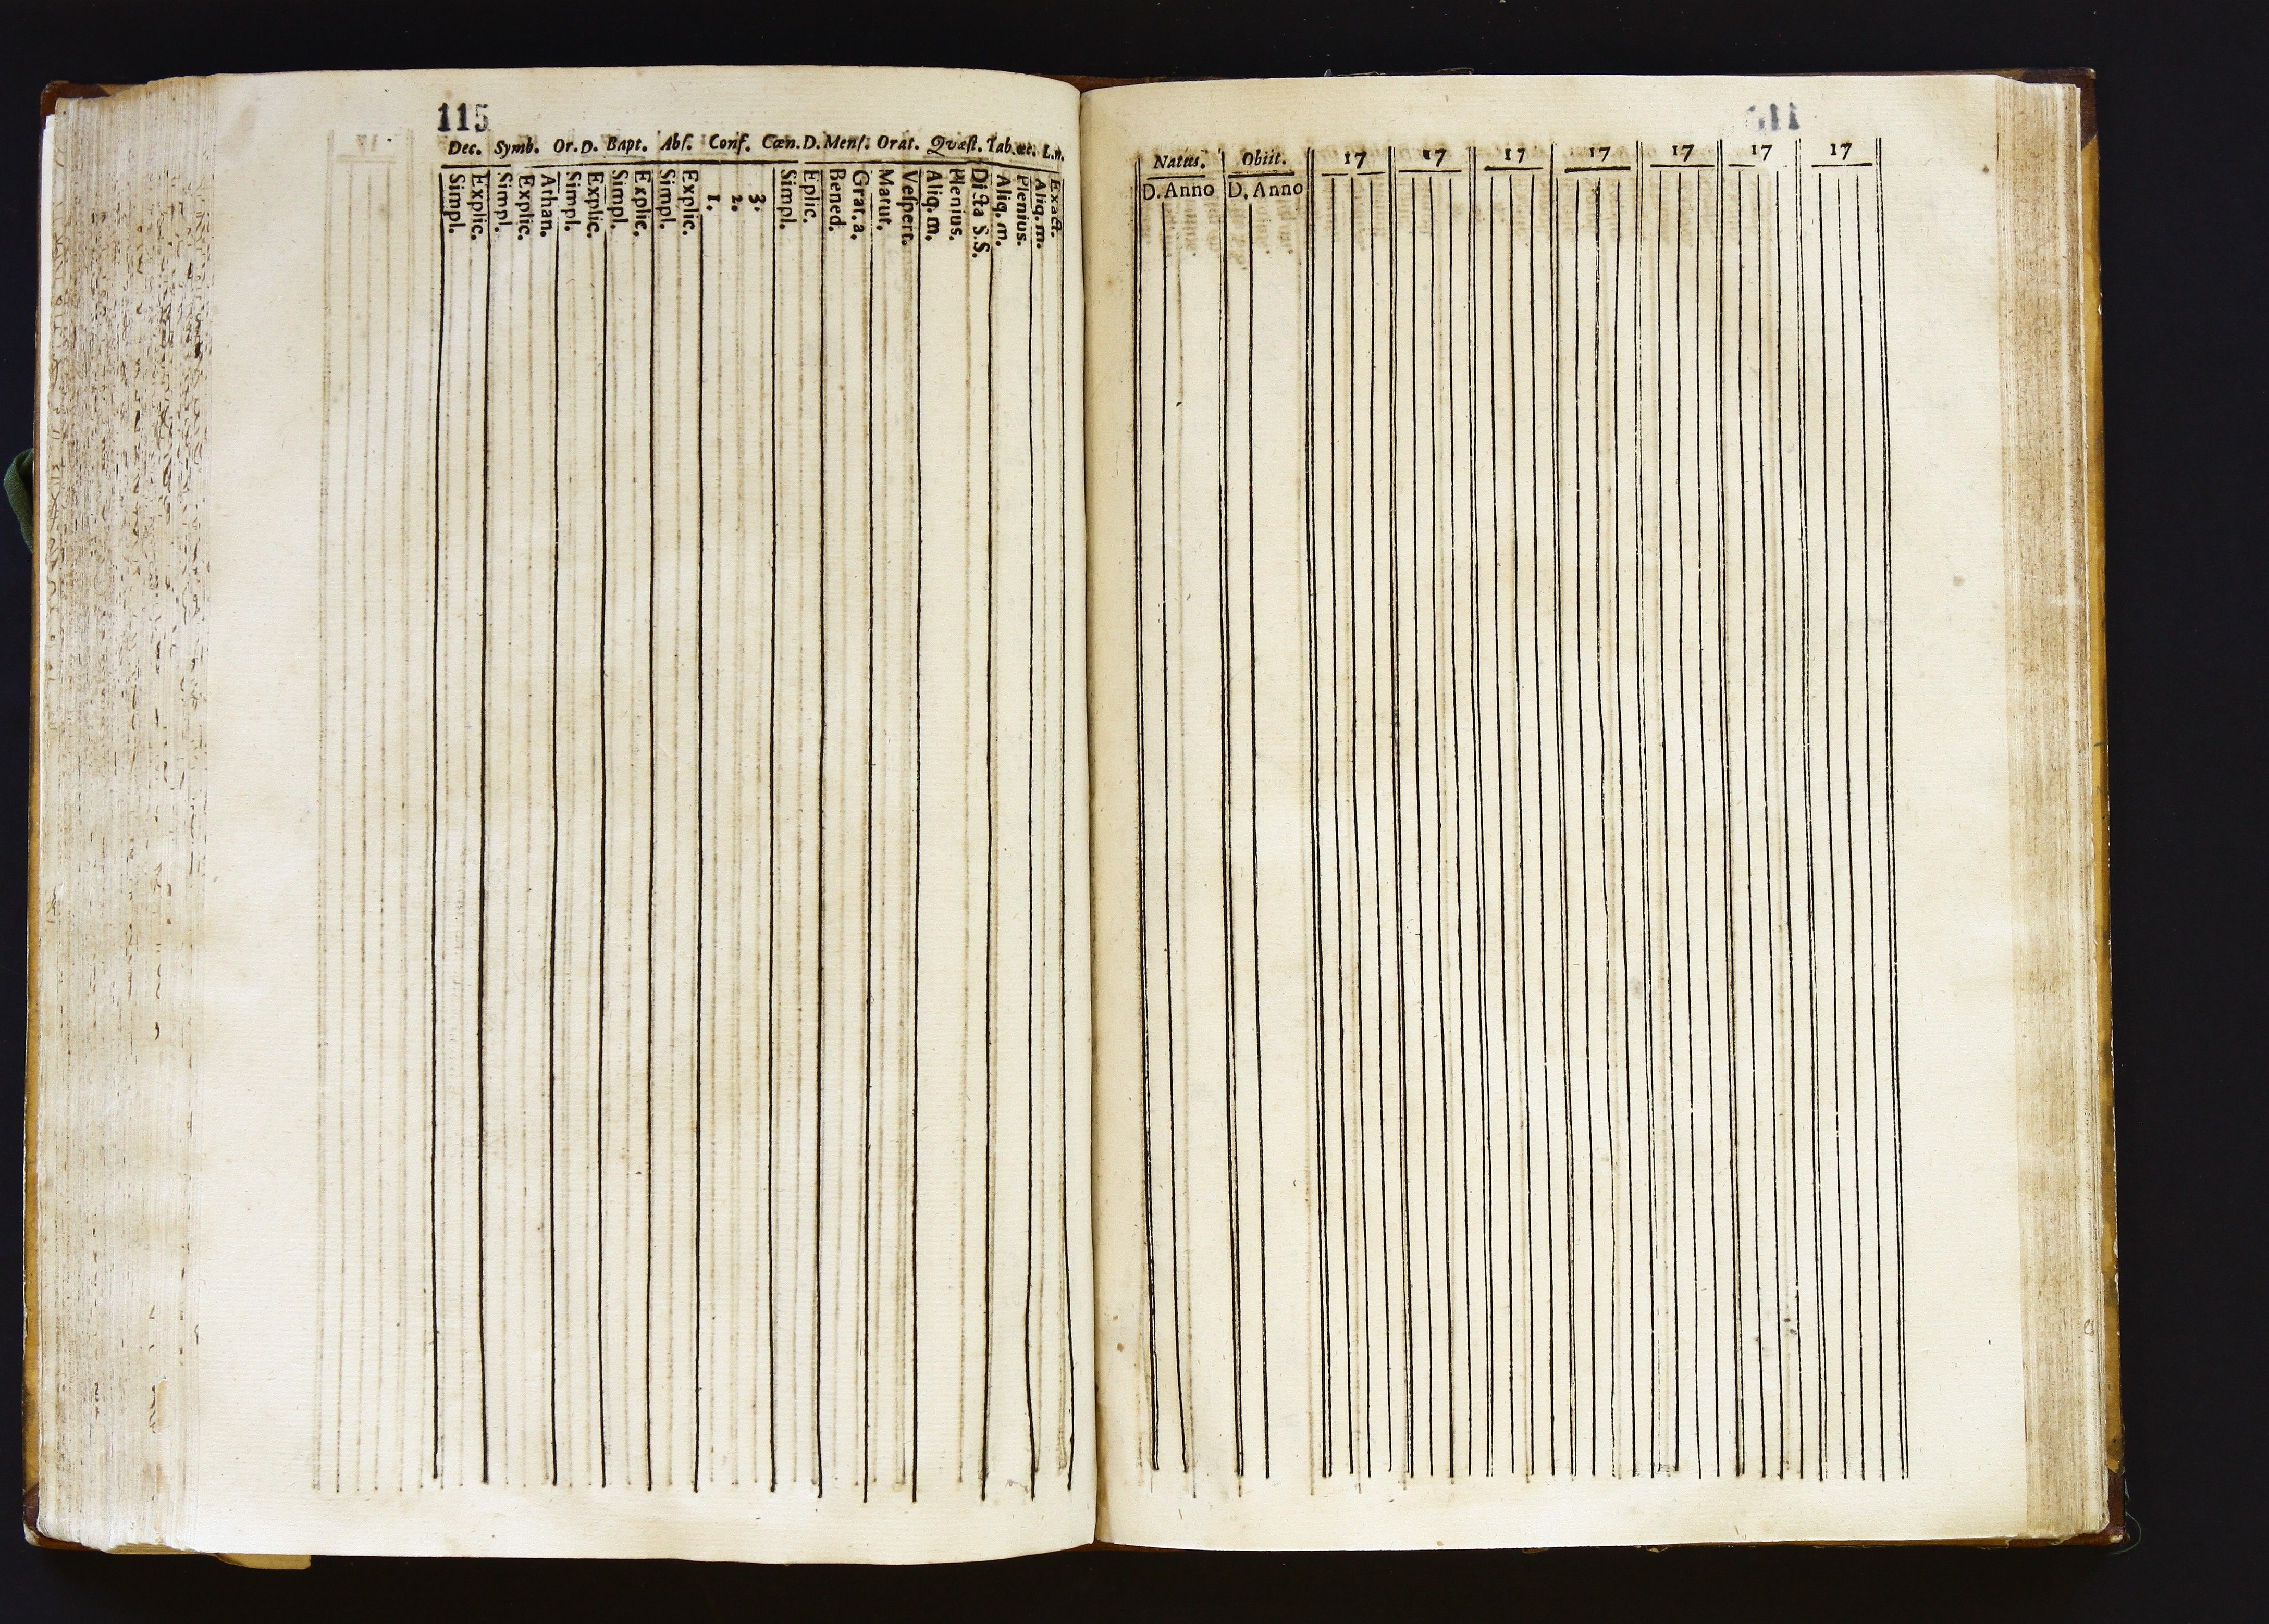 115
Dec. Symb. Or. D. Bapt. Abſ. Conf. Cœn. D. Menſ. Orat. Qvæſt. Tab. œc. L. n.
Simpl.
Explic.
Simpl.
Explic.
Athan.
Simpl.
Explic.
Simpl.
Explic.
Simpl.
Explic.
1.
2.
3.
Simpl.
Eplic.
Bened.
Grat. a.
Matut.
Veſpert.
Aliq. m.
Plenius.
Dicta S.S.
Aliq. m.
Plenius.
Aliq. m.
Exact.
Natus. Obiit. 17 17 17 17 17 17 17
D. Anno D. Anno